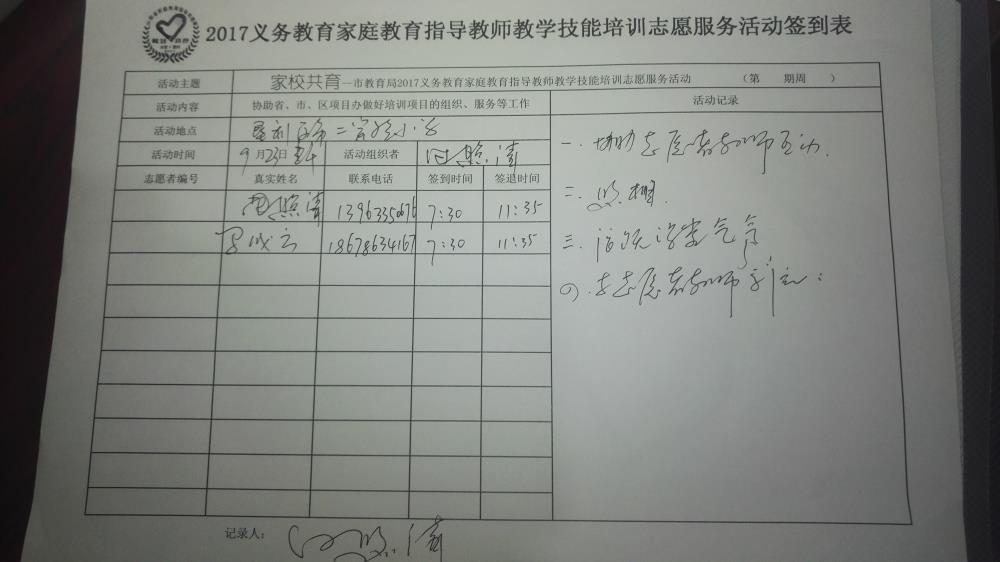 2017义务教育家庭教育指导教师教学技能培训志愿服务活动签到表
活动主题 家校共育—市教育局2017义务教育家庭教育指导教师教学技能培训志愿服务活动 (第 期周 )
活动内容 协助省、市、区项目办做好培训项目的组织、服务等工作 活动记录
活动地点 垦利区第二实验小学
活动时间 9月23日 活动组织者 照清
志愿者编号 真实姓名 联系电话 签到时间 签退时间
照清 13963350676 7:30 11:35
18678634167 7:30 11:35
一. 协助志愿者教师互动.
二. 照相.
三. 活跃课堂气氛
四. 志愿者教师
记录人: 照清